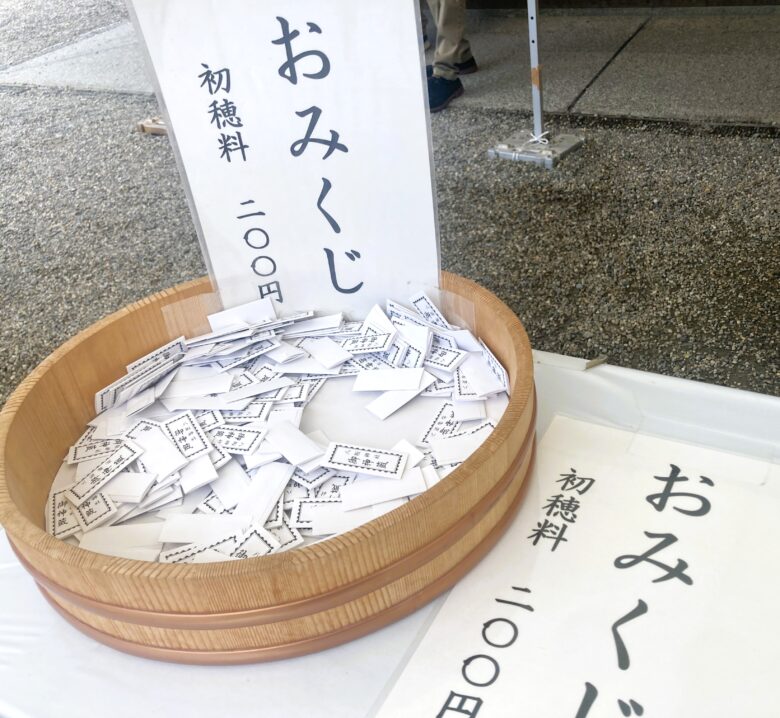 おみくじ
初穂料
二〇〇円
おみくじ
初穂料
二〇〇円
御神籤